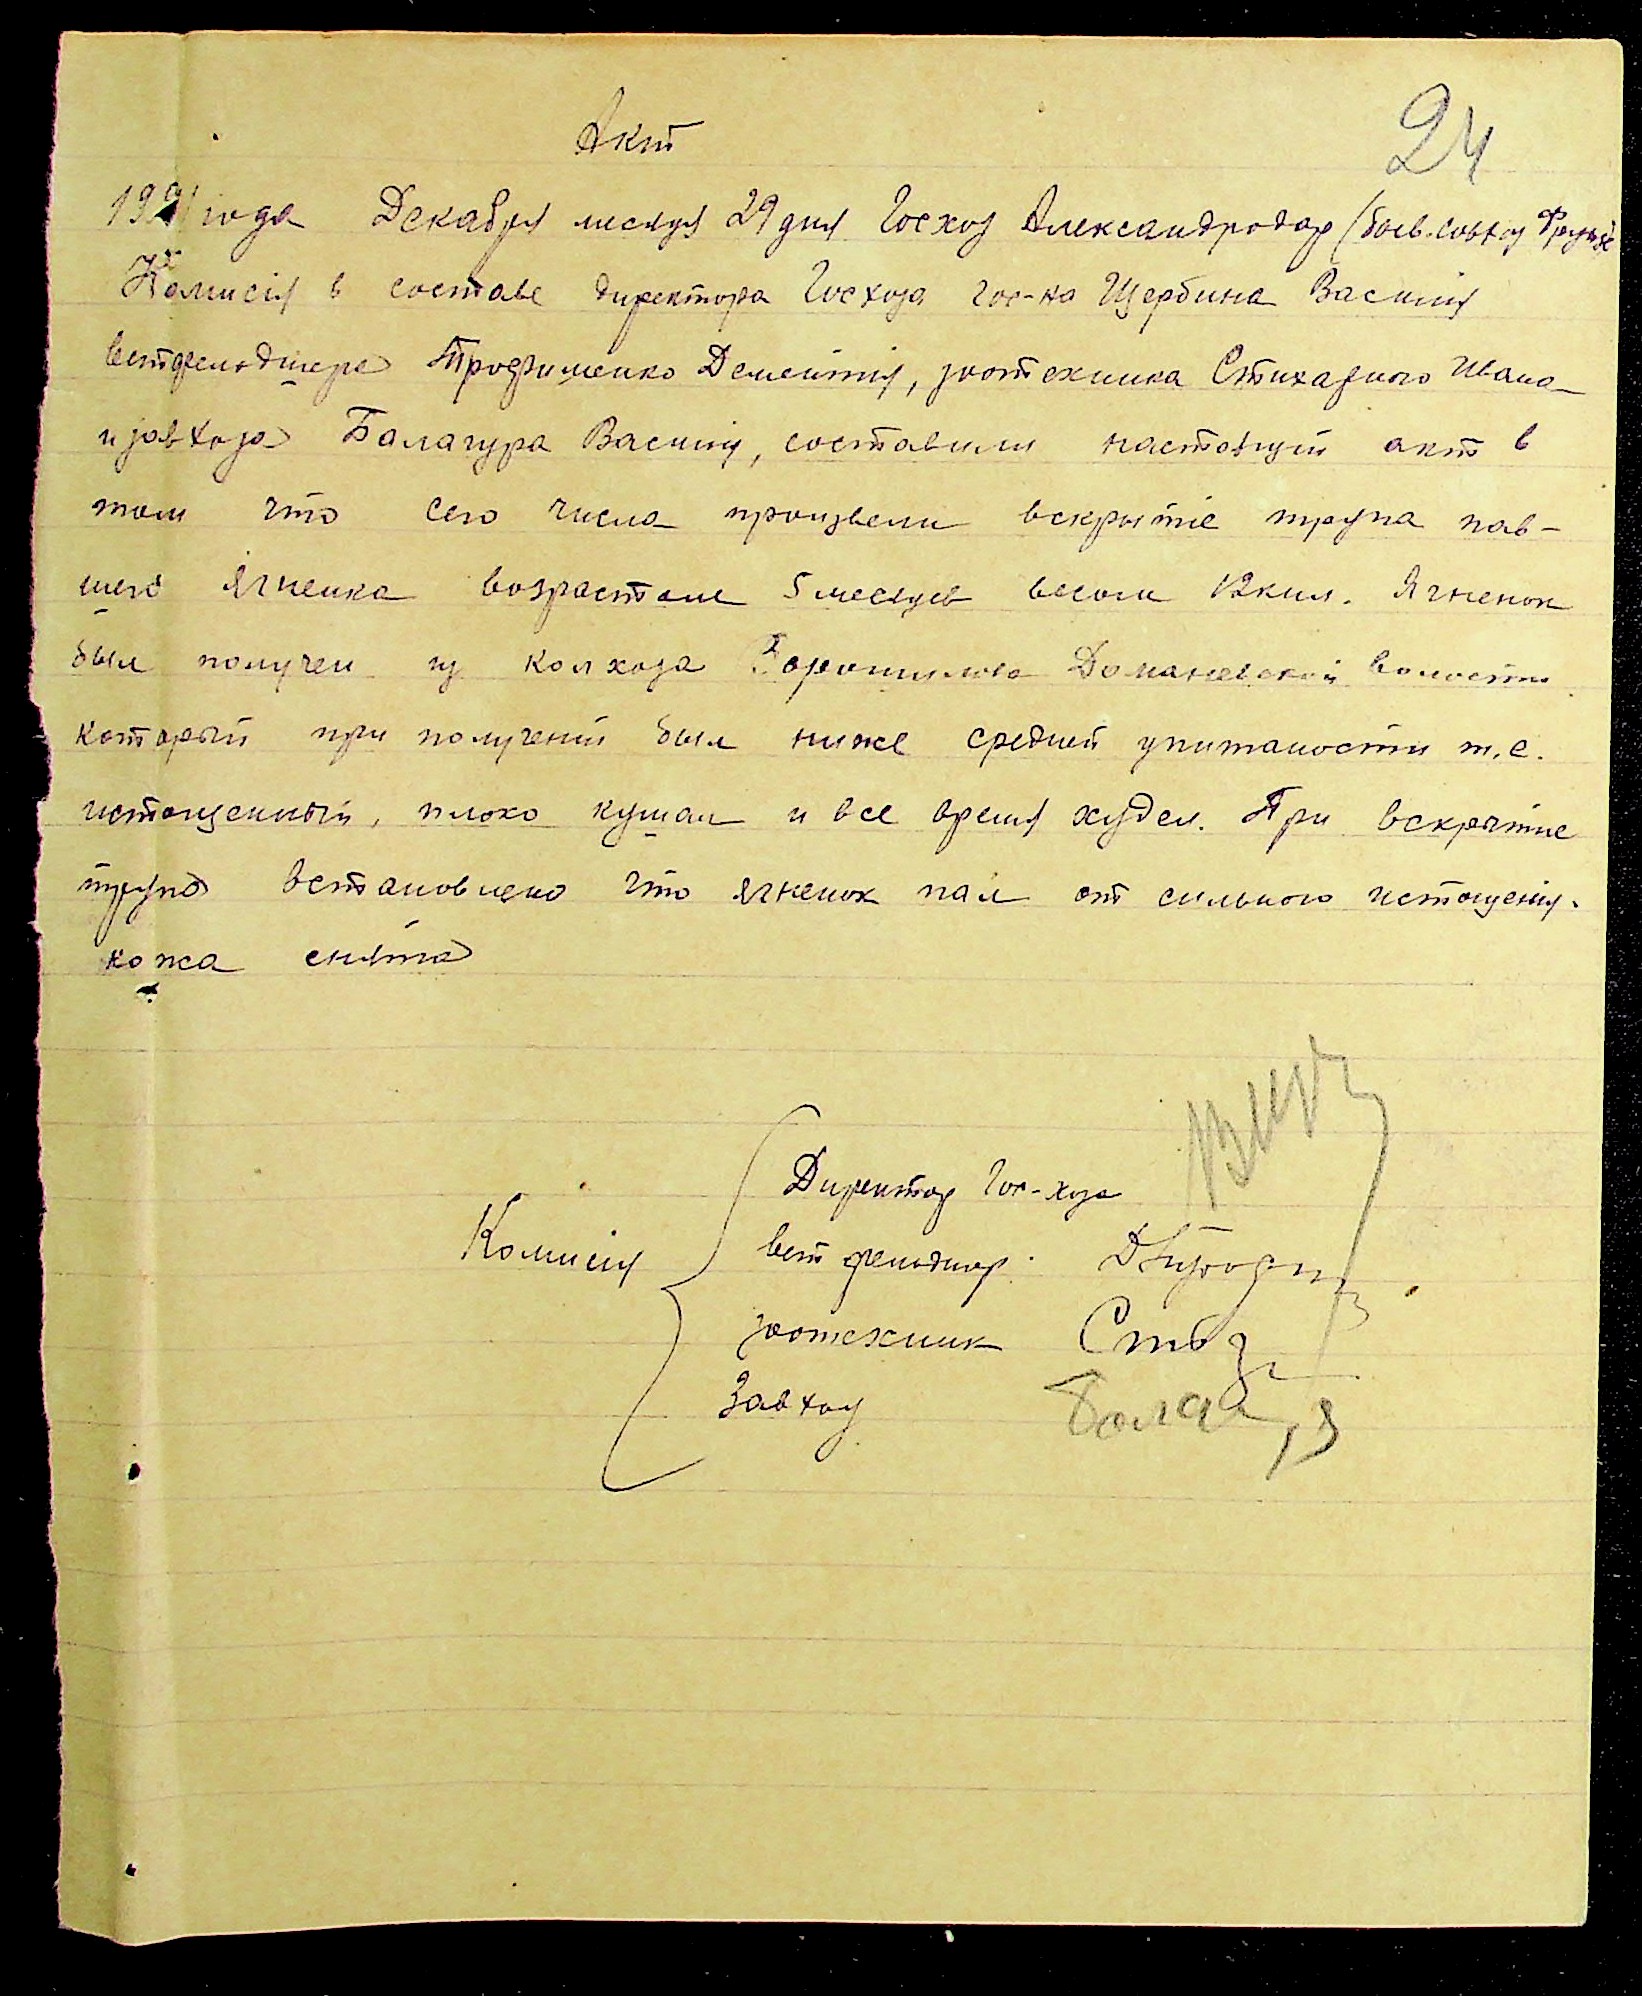 24
Акт
года Декабря месяця 29 дня Госхоз Александродар (бывв. совхоз
Комисія в составе директора Госхоза гос-на Щербина Василія
ветфельдшера Трофименко Деметія, зоотехника Стихарного Ивана
и завхоза Балагура Василія, составили настоящий акт в
том что сего числа произвели вскрытіе трупа пав-
шего ягненка возрастом 5 месяцев весом 12 кил. Ягненок
был получен из колхоза Ворошилова Доманевской волости
который при получении был ниже средней упитаности т.е.
истощенный, плохо кушал и все время худел. При вскрытіе
трупа встановлено что ягненок пал от сильного истощенія.
кожа снята
Директор Гос-хоза
Комисія ветфельдшер
зоотехник
Завхоз Балагур